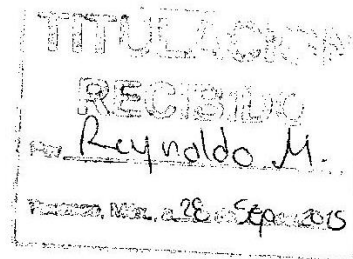 TITULACION
RECIBIDO
POR Reynoldo M.
Mex. a 28 Sep. 2015